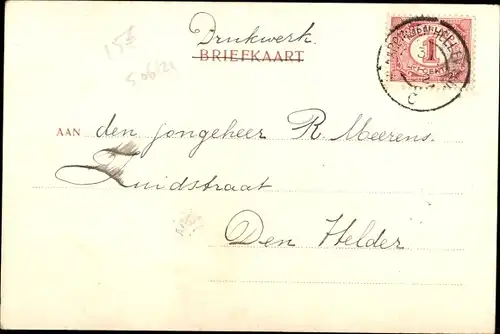 Drukwerk.
BRIEFKAART
1
AAN den jongeheer R. Meerens.
Zuidstraat
Den Helder